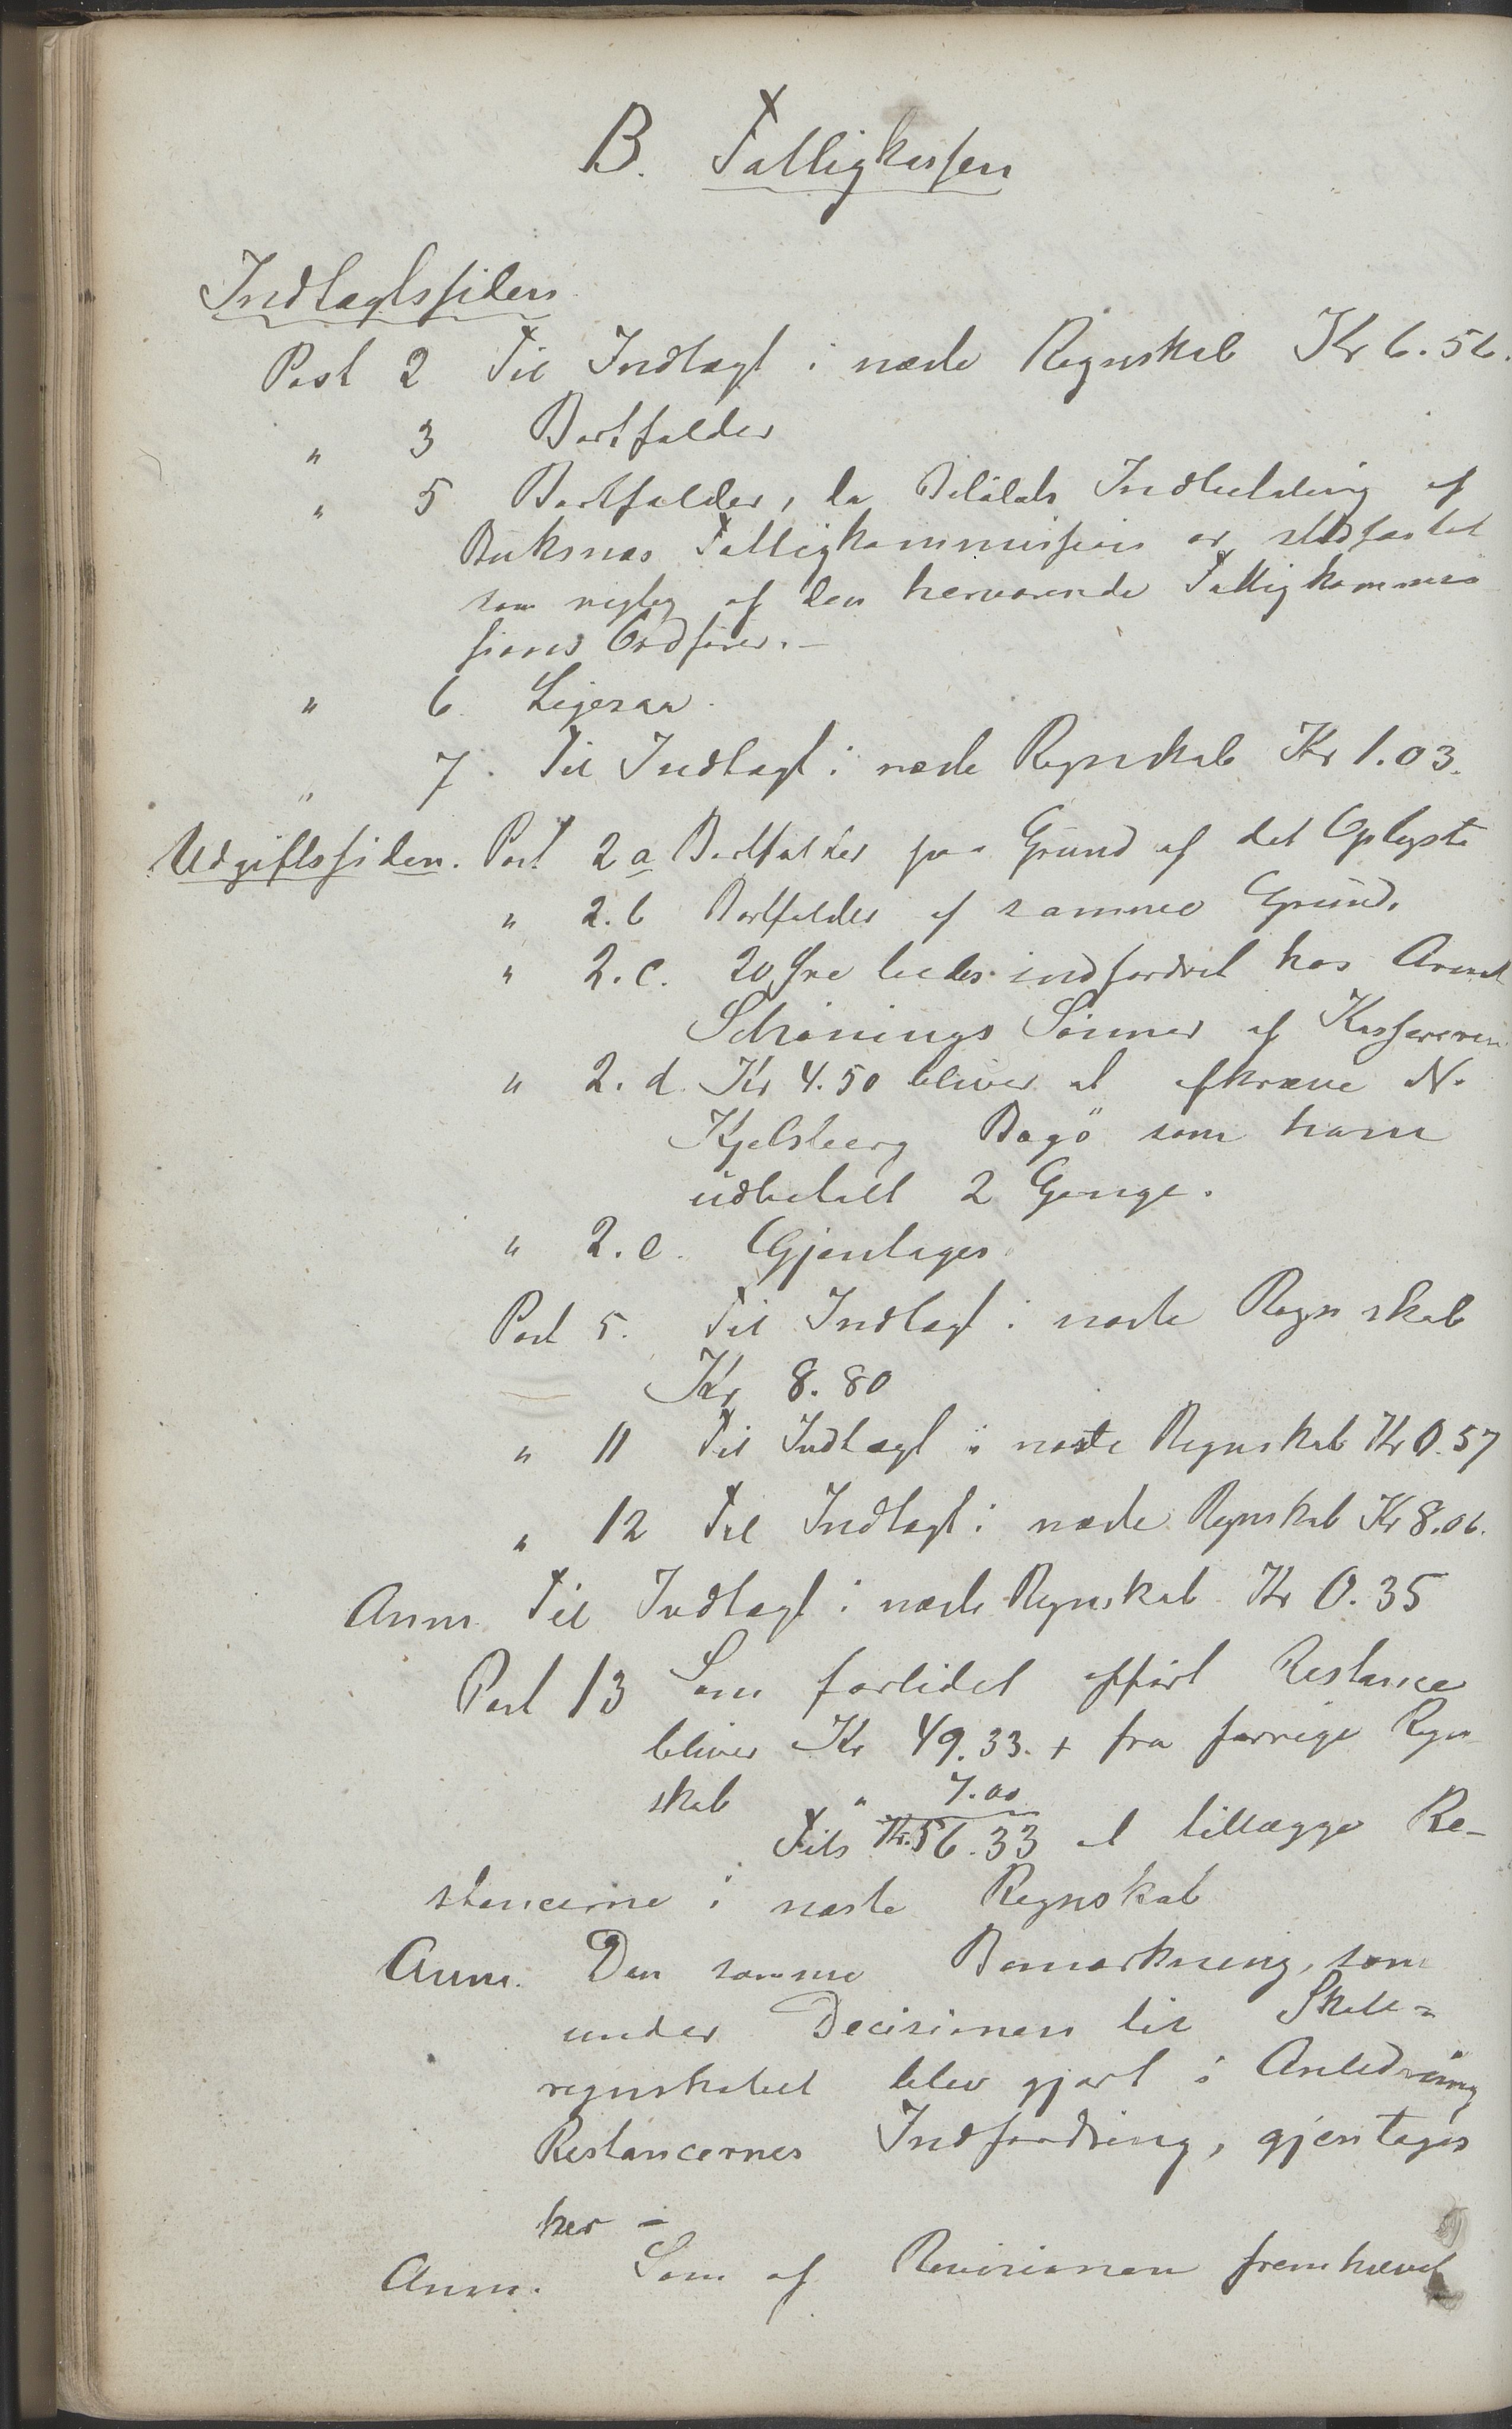 B. Fattigkassen
Indtægtssiden
Post 2 Til Indtægt i næste Regnskab Kr 6.56.
" 3 Bortfalder
" 5 Bortfalder, da Indbetaling af
Buksnæs Fattigkommission er stadfæstet
som rigtig af den herværende Fattigkommis
sions Ordfører. –
" 6 Ligesaa.
" 7. Til Indtægt i næste Regnskab Kr 1.03.
Udgiftssiden. Post 2 a Bortfalder paa Grund af det Oplyste
" 2.b Bortfalder af samme Grund.
" 2.c. 20 Øre bedes indfordret hos Arent
Schrønings Sønner af Kassereren
" 2.d. Kr 4.50 bliver at afkræve N.
Kjelsberg Bøgø som ham
udbetalt 2 Gange.
" 2.e. Gjentages
Post 5. Til Indtægt i næste Regnskab
Kr 8.80
" 11 Til Indtægt i næste Regnskab Kr 0.57
" 12 Til Indtægt i næste Regnskab Kr 8.06.
Anm. Til Indtægt i næste Regnskab Kr 0.35
Post 13 Som for lidet opført Restance
bliver Kr 49.33. + fra forrige Regn
skab " 7.00
Tils Kr. 56.33 at tillægge Re-
stancerne i næste Regnskab
Anm. Den samme Bemærkning, som
under Decisionen til Skole=
regnskabet blev gjort i Anledning
Restancernes Indfordring, gjentages
her –
Anm. Som af Revisionen fremhævet